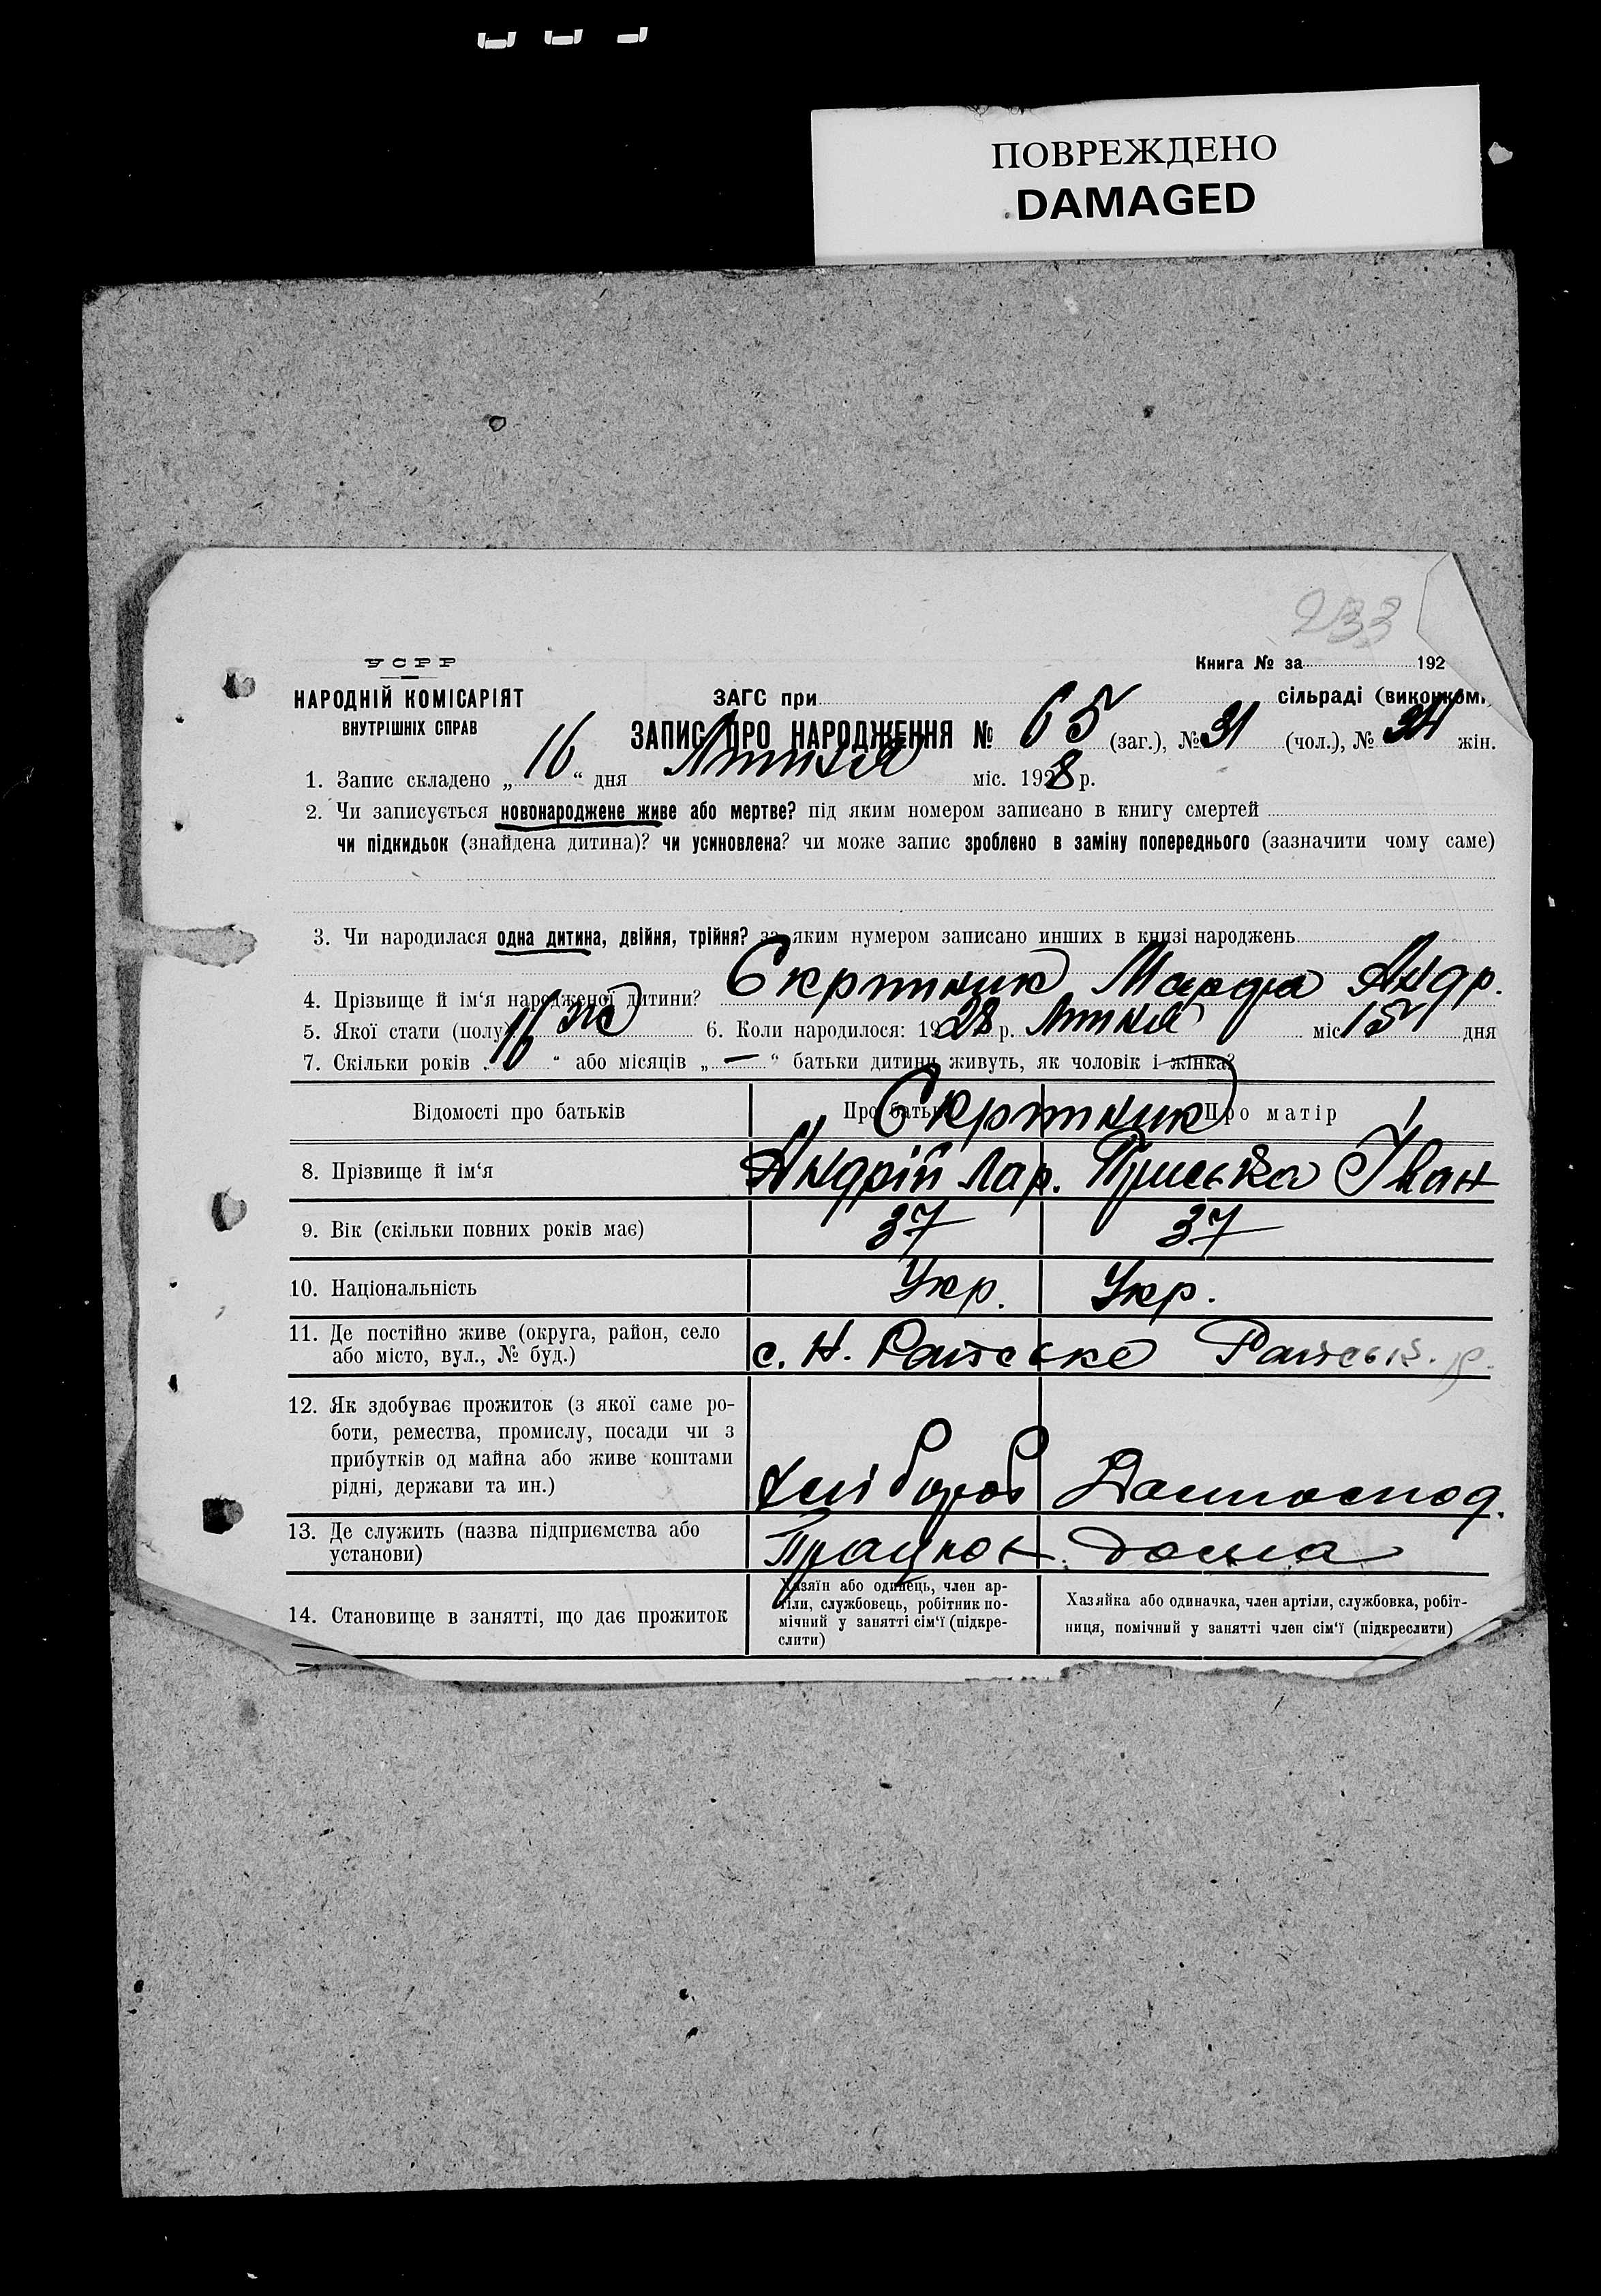 ПОВРЕЖДЕНО
DAMAGED
233
УСРР
Книга № за 192
НАРОДНІЙ КОМІСАРІЯТ
ЗАГС при сільраді (виконкомі
ВНУТРІШНІХ СПРАВ
ЗАПИС ПРО НАРОДЖЕННЯ № 65 (заг.), № 31 (чол.), № 34 жін.
1. Запис складено „ 16 “ дня Липня міс. 1928 р.
2. Чи записується новонароджене живе або мертве? під яким номером записано в книгу смертей
чи підкидьок (знайдена дитина)? чи усиновлена? чи може запис зроблено в заміну попереднього (зазначити чому саме)
3. Чи народилася одна дитина, двійня, трійня? за яким нумером записано инших в книзі народжень
4. Прізвище й ім‘я народженої дитини? Скрипник Марфа Андр.
5. Якої стати (полу) жіс 6. Коли народилося: 1928 р. Липня міс. 15 дня
7. Скільки років „ “ або місяців „ — “ батьки дитини живуть, як чоловік і жінка?
Відомості про батьків Про батька Про матір
Скрипник
8. Прізвище й ім‘я Андрій Лар. Приська Іван
9. Вік (скільки повних років має) 37 37
10. Національність Укр. Укр.
11. Де постійно живе (округа, район, село
або місто, вул., № буд.) с. Н.
12. Як здобуває прожиток (з якої саме ро-
боти, ремества, промислу, посади чи з
прибутків од майна або живе коштами
рідні, держави та ин.) Хлібороб Домогоспод.
13. Де служить (назва підприємства або
установи) дома
14. Становище в занятті, що дає прожиток
Хазяїн або одинець, член ар-
тіли, службовець, робітник по-
мічний у занятті сім‘ї (підкре-
слити)
Хазяйка або одиначка, член артіли, службовка, робіт-
ниця, помічний у занятті член сім‘ї (підкреслити)